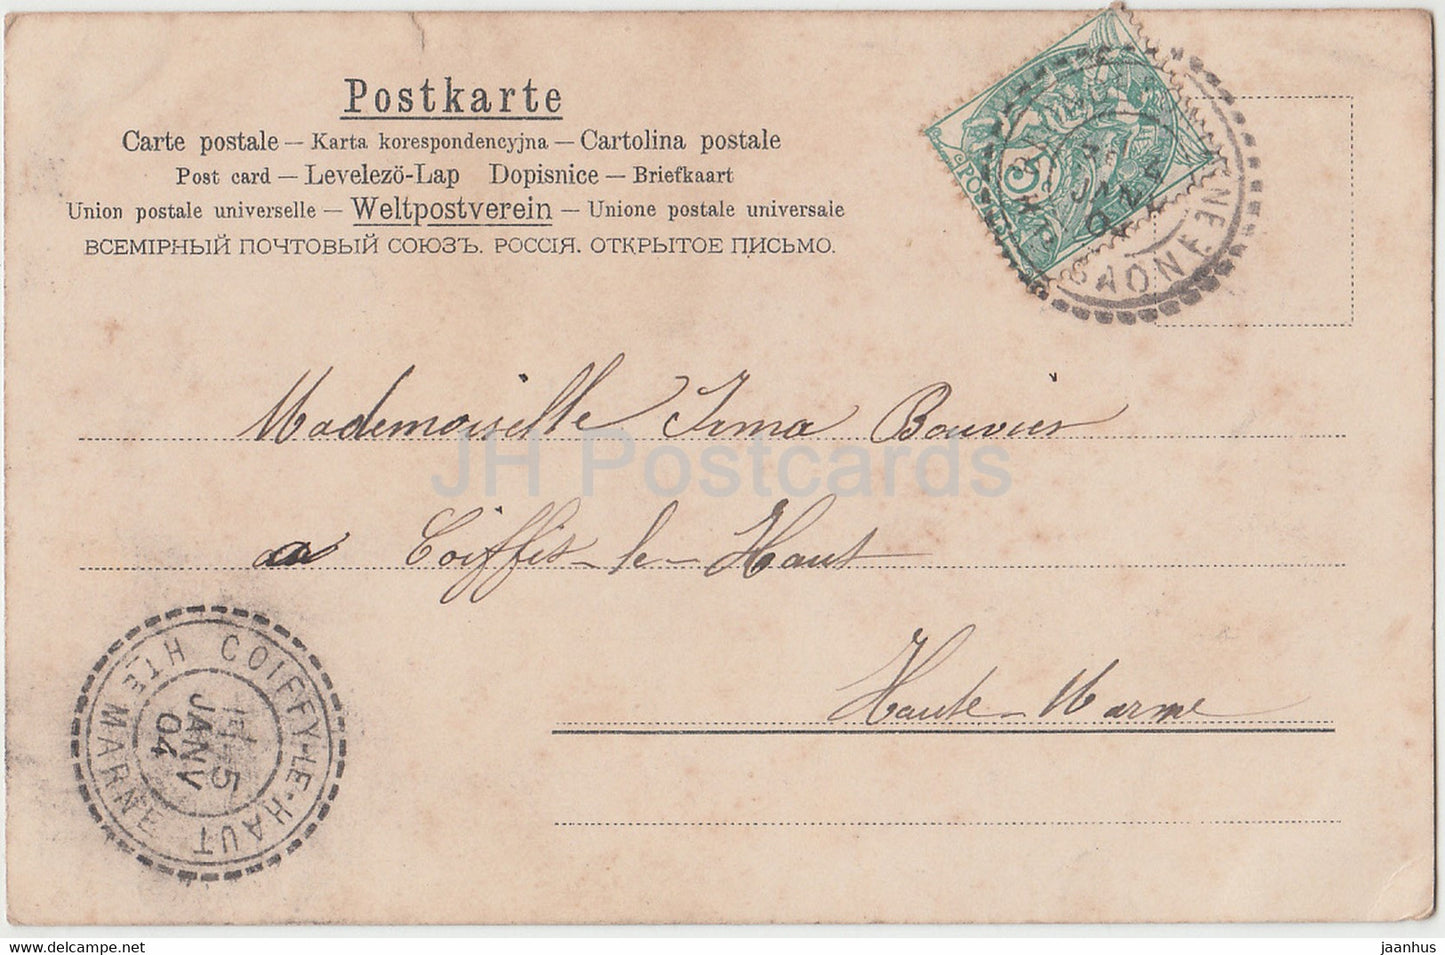 Postkarte
Carte postale — Karta korespondencyjna — Cartolina postale
Post card — Levelező-Lap Dopisnice — Briefkaart
Union postale universelle — Weltpostverein — Unione postale universale
ВСЕМІРНЫЙ ПОЧТОВЫЙ СОЮЗЪ. РОССІЯ. ОТКРЫТОЕ ПИСЬМО.
JANV
04
SAONE
Mademoiselle Irma Bouvier
JH Postcards
a Coiffis-le-Haut
Haute-Marne
COIFFY-LE-HAUT
HTE MARNE
5
JANV
04
jaanhus